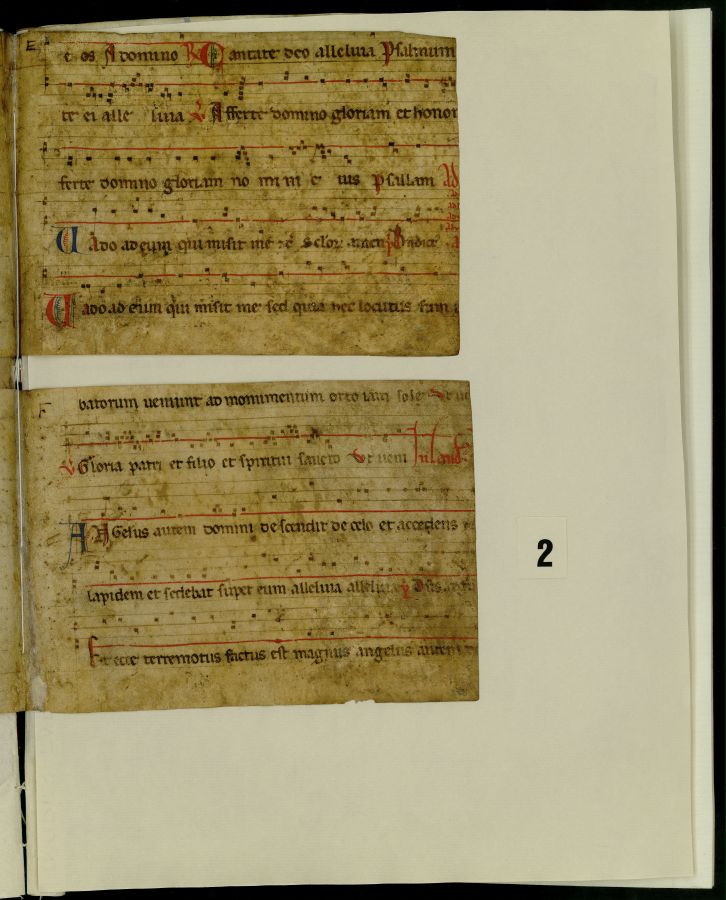 E
e os A domino R Cantate deo alleluia Psalmum
te ei alle luia V Afferte domino gloriam et honor
ferte domino gloriam no mi ni e ius psallam
Uado ad eum qui misit me
Uado ad eum qui misit me sed quia hec locutus sum
F
batorum ueniunt ad monumentum orto iam sole
V Gloria patri et filio et spiritui sancto Vt ueni In laud
ANGelus autem domini descendit de celo et accedens
lapidem et sedebat super eum alleluia alleluia
Et ecce terremotus factus est magnus angelus autem
2